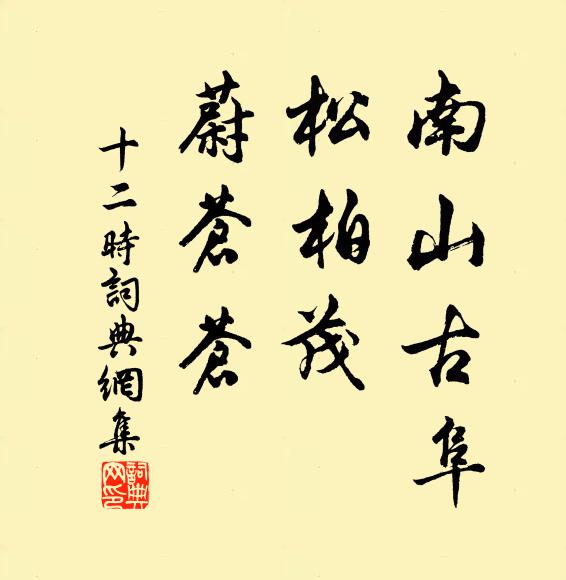 南山古阜
松柏茂
蔚蒼蒼
十二時詞典網集
詞典
网印